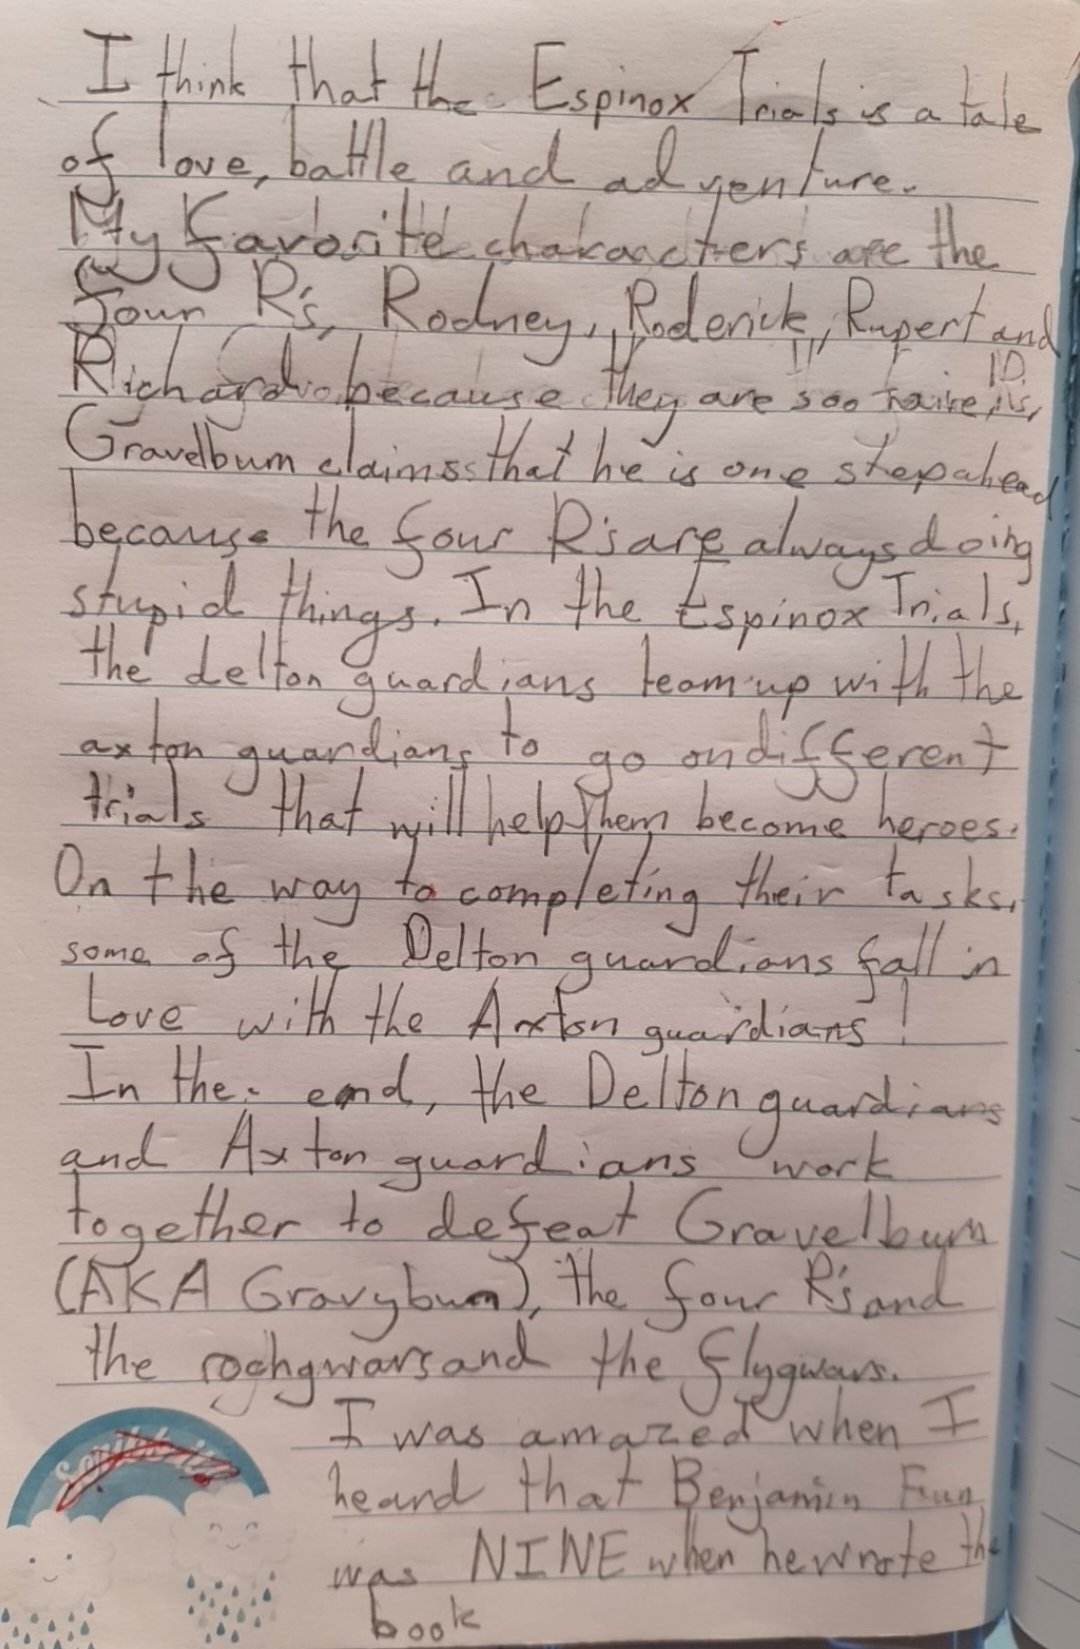 I think that the Espinox Trials is a tale
of love, battle and adventure.
My favorite charaacters are the
four R's, Rodney, Roderick, Rupert and
Richard because they are soo
Gravelbum claims that he is one step ahead
because the four R's are always doing
stupid things. In the Espinox Trials,
the delton guardians team up with the
axton guardians to go on different
trials that will help them become heroes.
On the way to completing their tasks,
some of the Delton guardians fall in
Love with the Axton guardians!
In the end, the Delton guardians
and Axton guardians work
together to defeat Gravelbum
(AKA Gravybum), the four R's and
the and the flygwars.
I was amazed when I
heard that Benjamin
was NINE when he wrote the
book